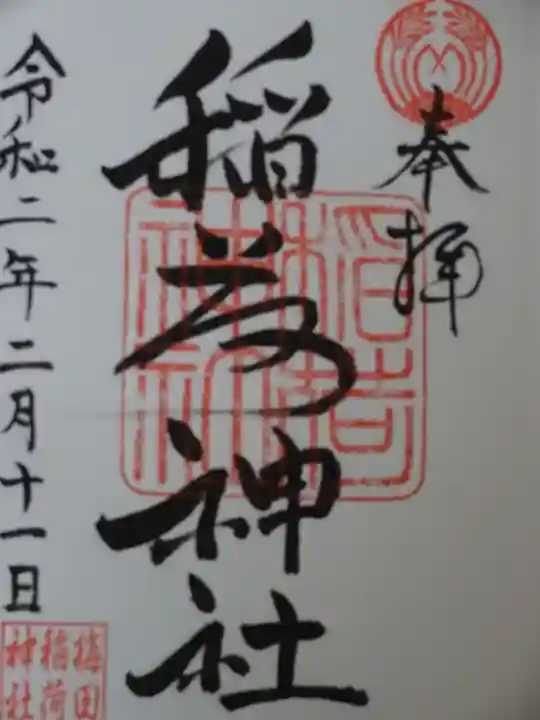 奉拝
稲荷神社
稲荷神社
令和二年二月十一日
梅田
稲荷
神社